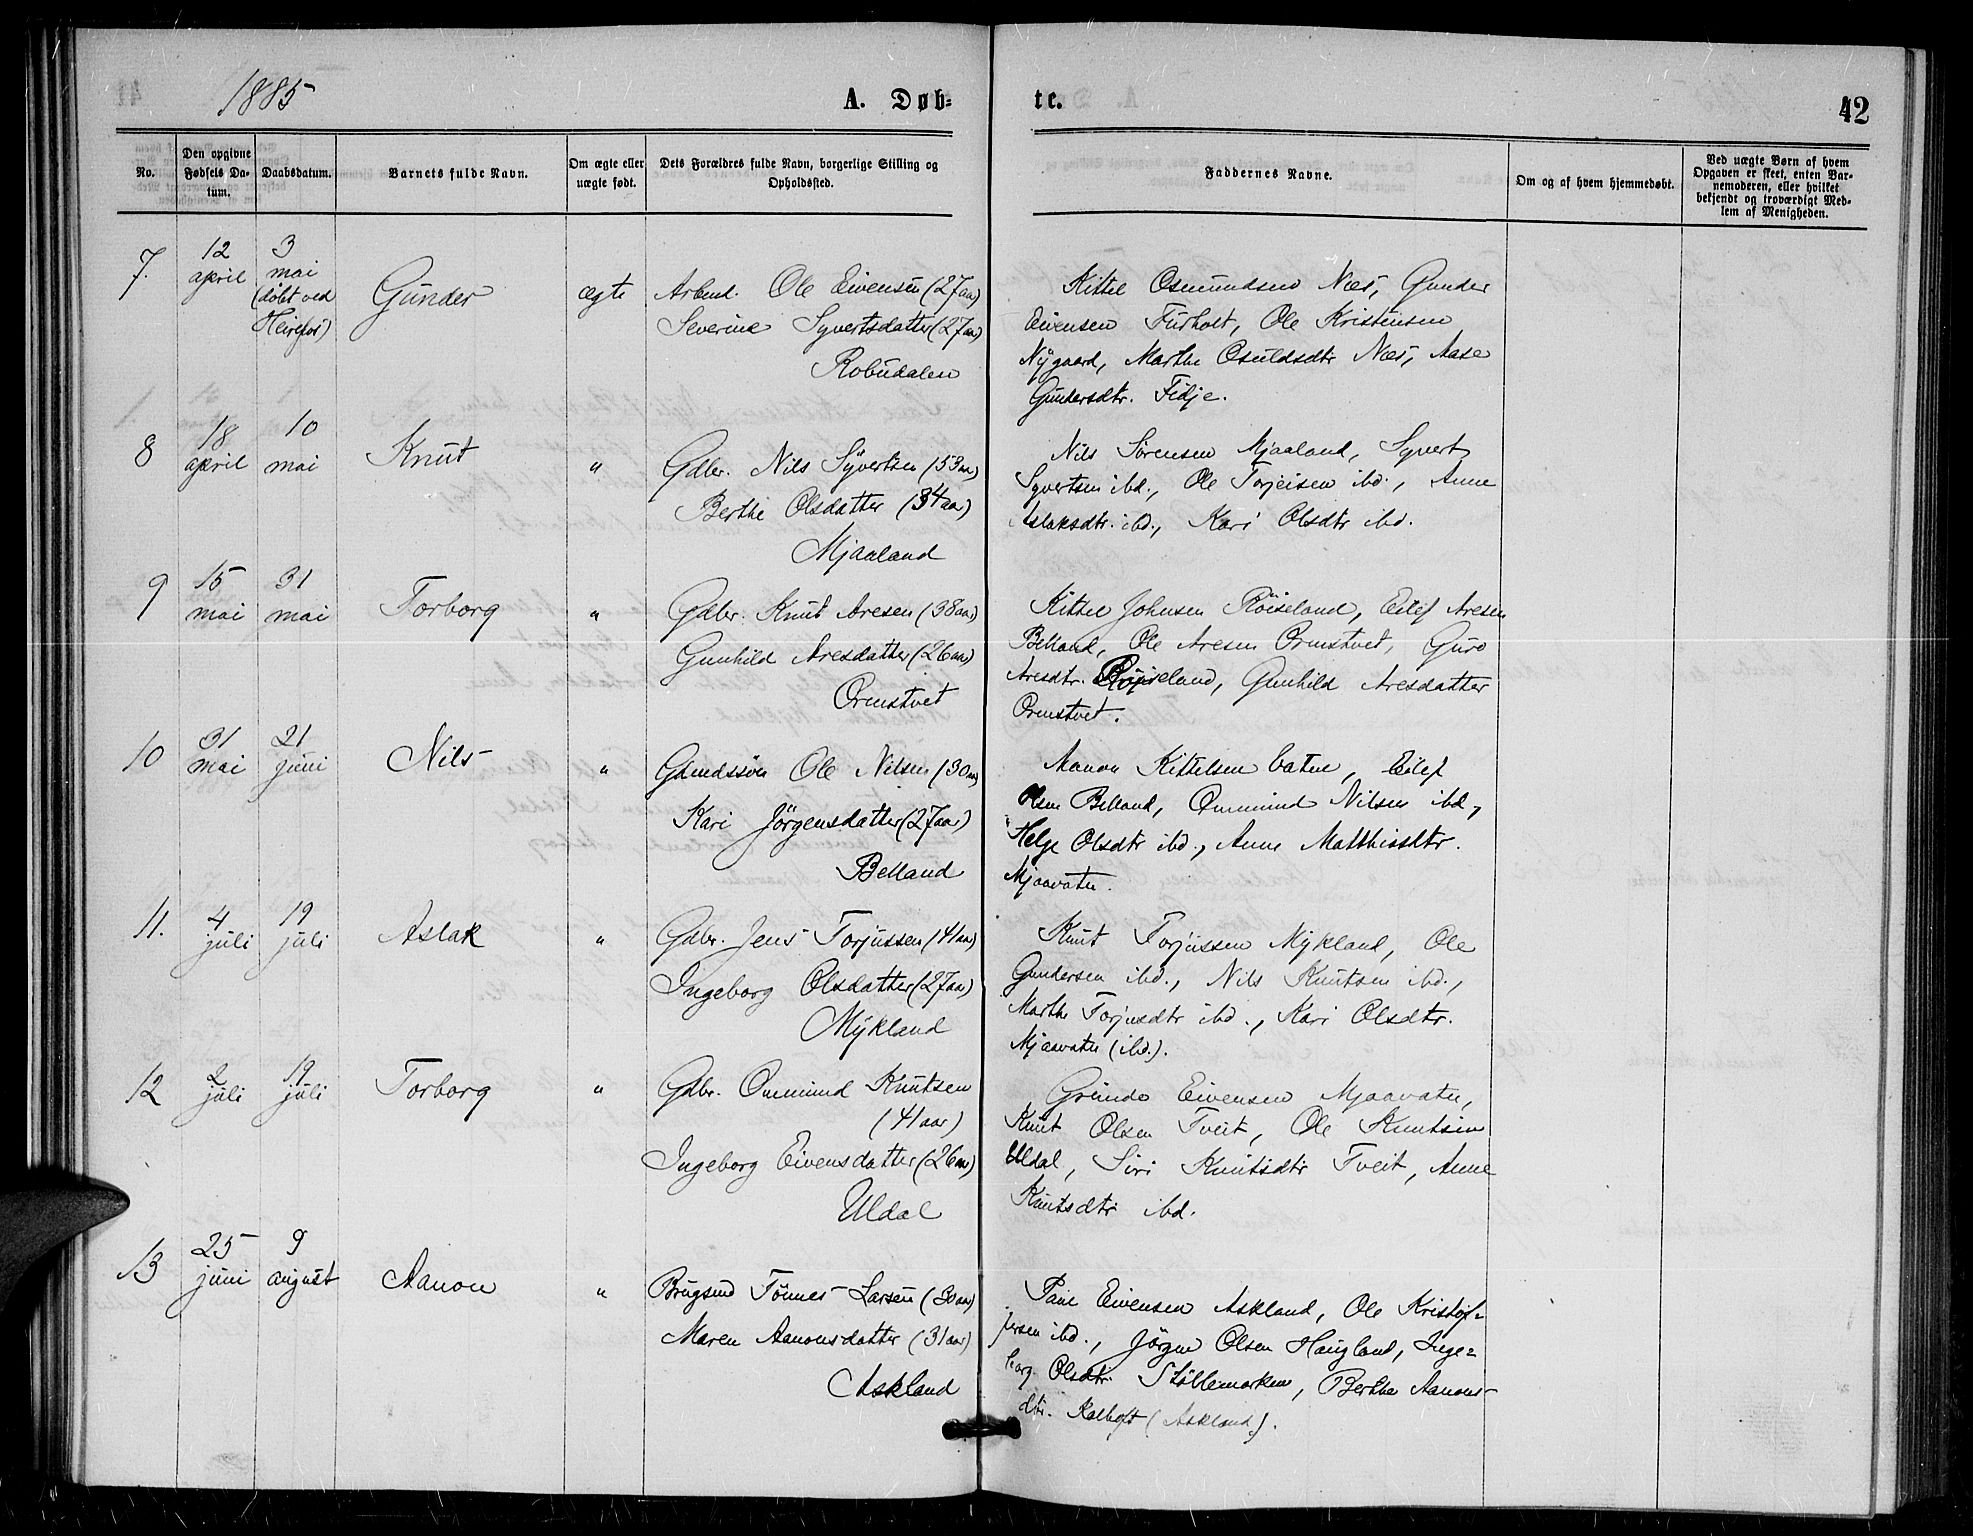 1885
A. Døb=
te.
42
No.
Den opgivne Fødsels Da-
tum.
Daabsdatum.
Barnets fulde Navn.
Om ægte eller
uægte født.
Dets Forældres fulde Navn, borgerlige Stilling og
Opholdssted.
Faddernes Navne.
Om og af hvem hjemmedøbt.
Ved uægte Børn af hvem
Opgaven er skeet, enten Bar-
nemoderen, eller hvilket
bekjendt og troværdigt Med-
lem af Menigheden.
7.
12
april
3
mai
(döbt ved
Heirefos)
Gunder
ægte
Arbmd. Ole Eivensen (27 aar)
Severine Syvertsdatter (27 aar)
Robudalen
Kittel Osmundsen Næs, Gunder
Eivensen Furholt, Ole Kristensen
Nygaard, Marthe Osuldsdtr Næs, Aase
Gundersdtr. Fidje.
8
18
april
10
mai
Knut
"
Gdbr. Nils Syvertsen (53 aar)
Berthe Olsdatter (34 aar)
Mjaaland
Nils Sörensen Mjaaland, Syvert
Syvertsen ibd., Ole Torjeisen ibd., Anne
Aslaksdtr. ibd., Kari Olsdtr ibd.
9
15
mai
31
mai
Torborg
"
Gdbr. Knut Aresen (38 aar)
Gunhild Aresdatter (26 aar)
Ormstvet
Kittel Johnsen Röiseland, Eilef Aresen
Belland, Ole Aresen Ormstvet, Guro
Aresdtr. Röiseland, Gunhild Aresdatter
Ormstvet.
10
31
mai
21
juni
Nils
"
Gmdssön Ole Nilsen (30 aar)
Kari Jörgensdatter (27 aar)
Belland
Aanon Kittelsen, Eilef
Olsen Belland, Ommund Nilsen ibd.,
Helge Olsdtr ibd., Anne Matthisdtr.
Mjaavatn.
11.
4
juli
19
juli
Aslak
"
Gdbr. Jens Torjussen (41 aar)
Ingeborg Olsdatter (27 aar)
Mykland
Knut Torjussen Mykland, Ole
Gundersen ibd., Nils Knutsen ibd.,
Marthe Torjusdtr ibd., Kari Olsdtr.
Mjaavatn (ibd.).
12
2
juli
19
juli
Torborg
"
Gdbr. Ommund Knutsen
(41 aar)
Ingeborg Eivensdatter (26 aar)
Uldal
Grunde Eivensen Mjaavatn,
Knut Olsen Tveit, Ole Knutsen
Uldal, Siri Knutsdtr Tveit, Anne
Knutsdtr ibd.
13
25
juni
9
august
Aanon
"
Brugsmd Tönnes Larsen (30 aar)
Maren Aanonsdatter (31 aar)
Askland
Eivensen Askland, Ole Kristof=
fersen ibd., Jörgen Olsen Haugland, Inge=
borg Olsdtr. Stöllemarken, Berthe Aanons-
dtr. (Askland).